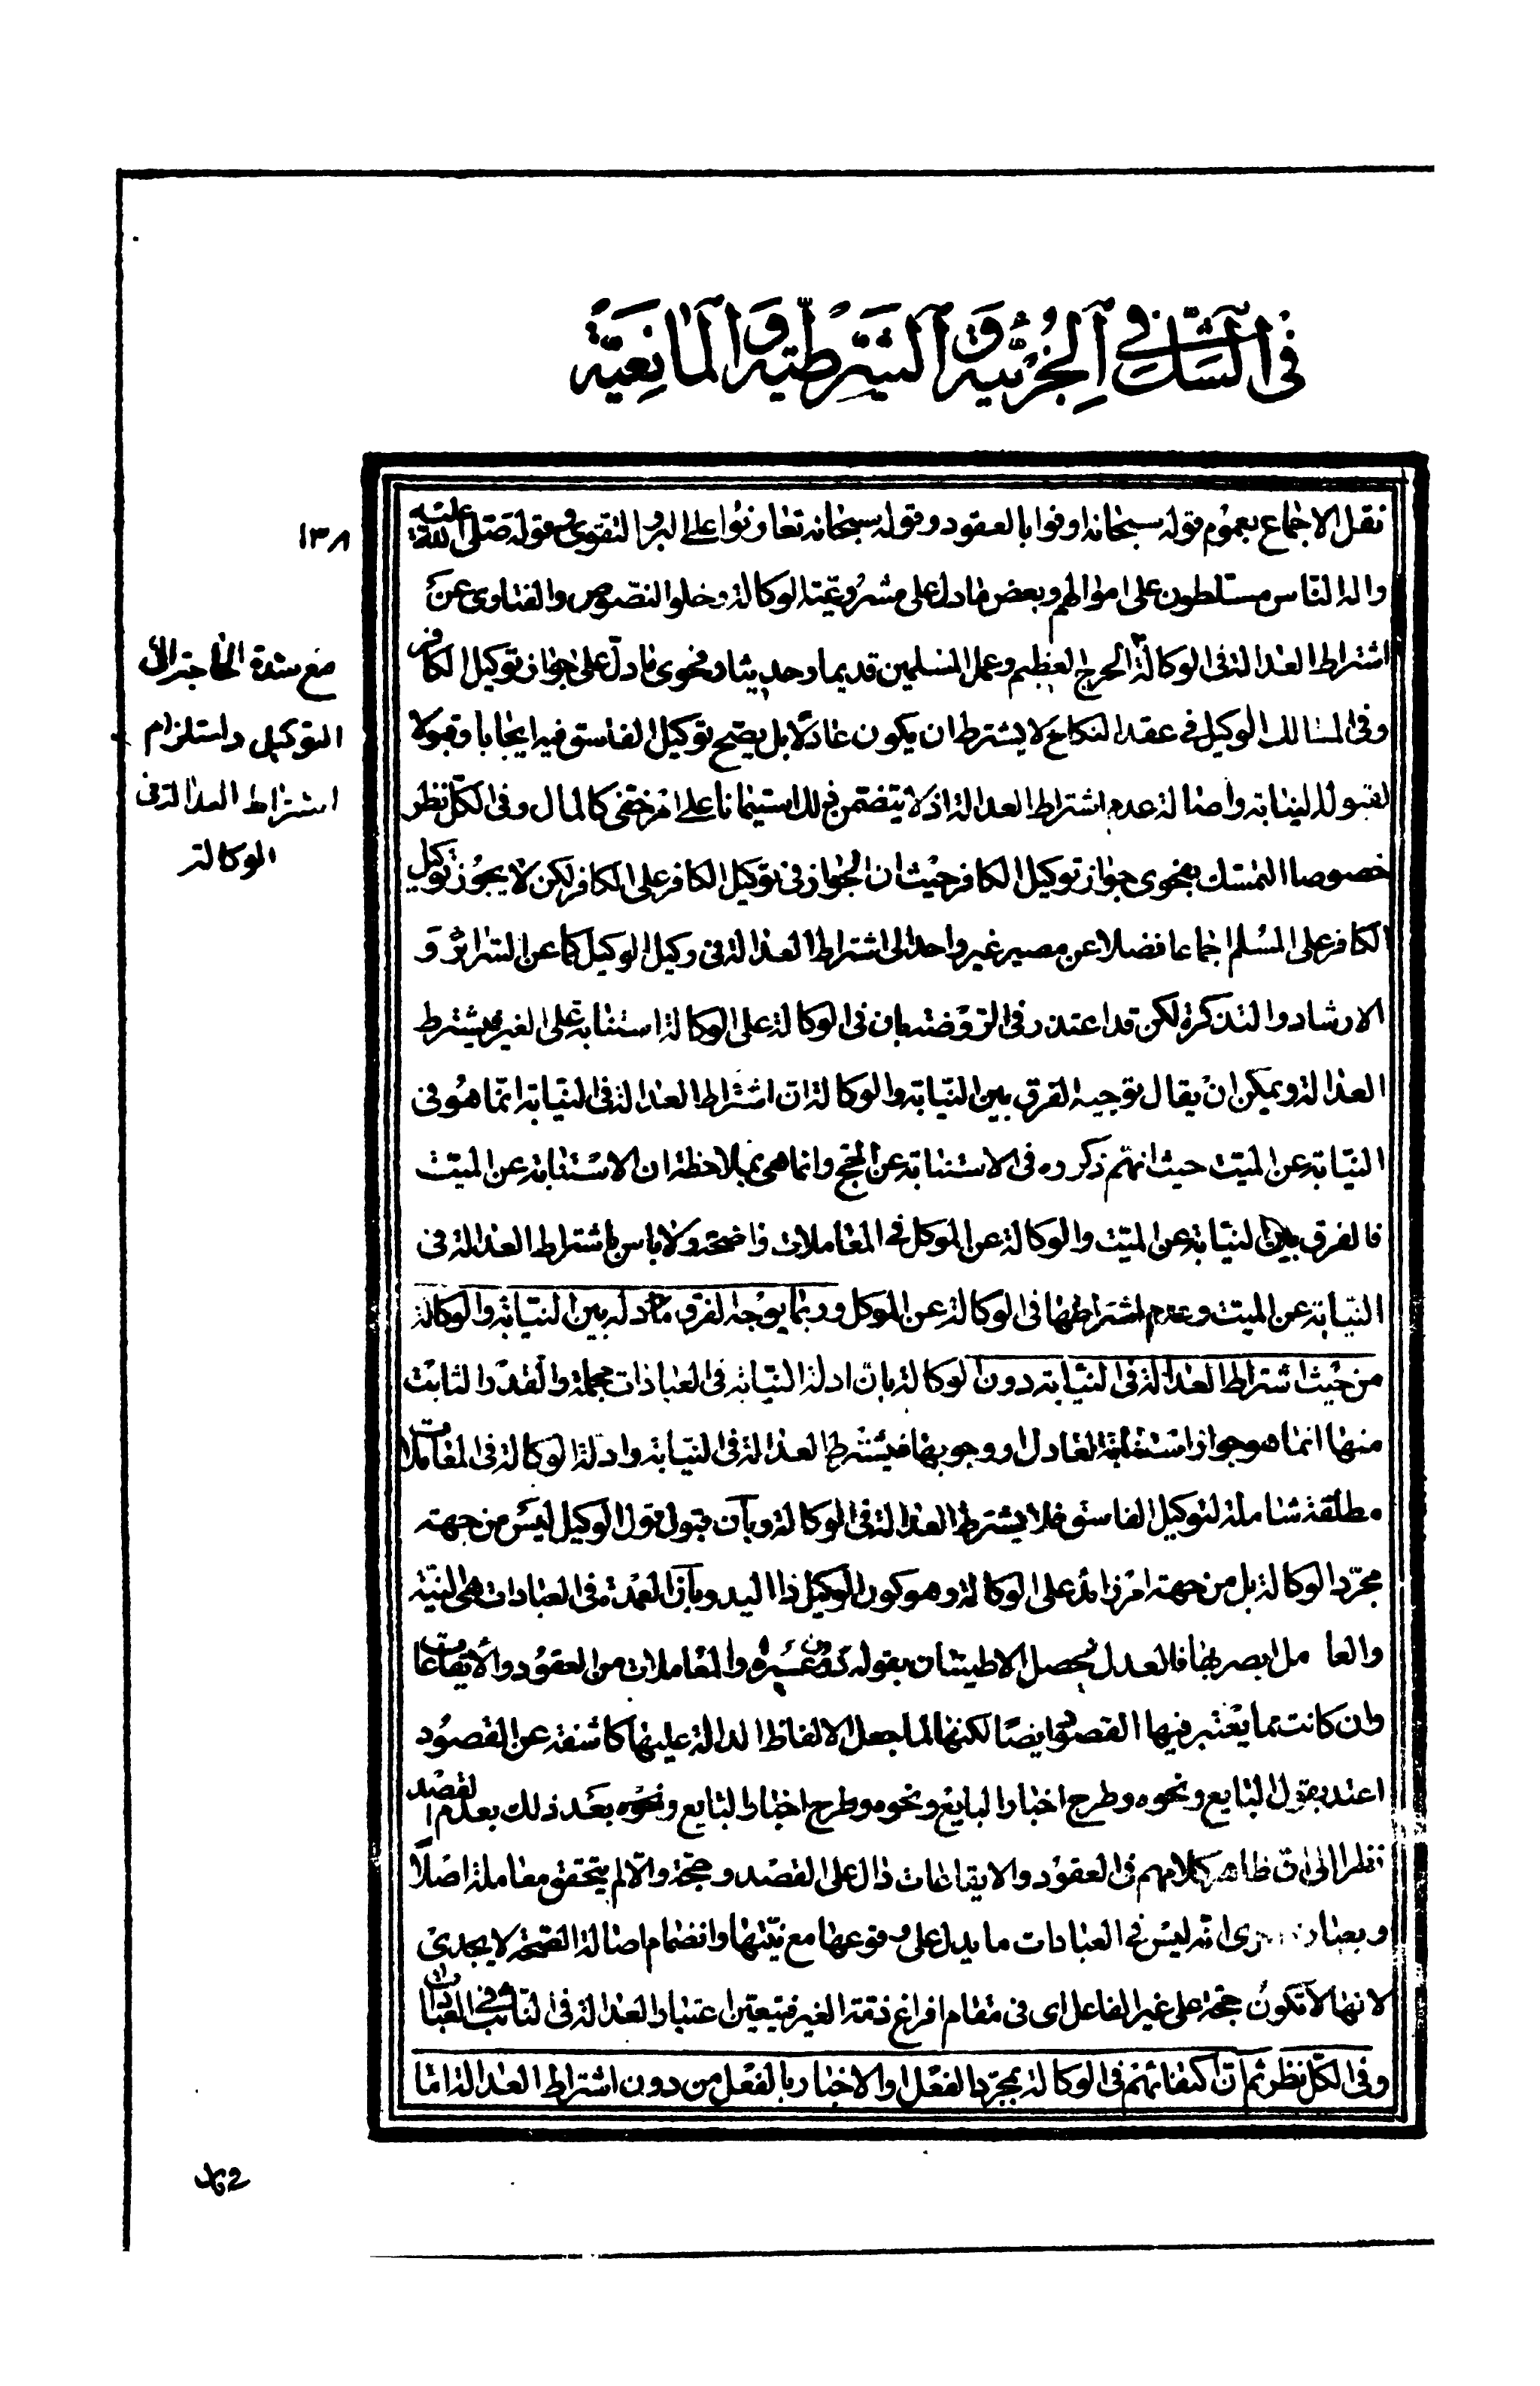 في الشك في الجزئية والشرطية والمانعية
نقل الاجماع بعموم قوله سبحانه اوفوا بالعقود وقوله سبحانه تعاونوا على البر والتقوى وقوله صلى الله عليه
واله الناس مسلطون على اموالهم وبعض ما دل على مشروعية الوكالة وخلو النصوص والفتاوى عن
اشتراط العدالة في الوكالة الحرج العظيم وعمل المسلمين قديما وحديثا وفحوى ما دل على جواز توكيل الكافر
وفي المسالك الوكيل في عقد النكاح لا يشترط ان يكون عادلا بل يصح توكيل الفاسق فيه ايجابا وقبولا
لقبوله للنيابة واصالة عدم اشتراط العدالة اذ لا يتضمن ذلك استيمانا على امر خفي كالمال وفي الكل نظر
خصوصا التمسك بفحوى جواز توكيل الكافر حيث ان الجواز في توكيل الكافر على الكافر لكن لا يجوز توكيل
الكافر على المسلم اجماعا فضلا عن مصير غير واحد الى اشتراط العدالة في وكيل الوكيل كما عن السرائر و
الارشاد والتذكرة لكن قد اعتذر في الروضة بان في الوكالة على الوكالة استنابة على الغير فيشترط
العدالة ويمكن ان يقال توجيه الفرق بين النيابة والوكالة ان اشتراط العدالة في النيابة انما هو في
النيابة عن الميت حيث انهم ذكروه في الاستنابة عن الحج وانما هي بملاحظة ان الاستنابة عن الميت
فالفرق بين النيابة عن الميت والوكالة عن الموكل في المعاملات واضحة ولا باس باشتراط العدالة في
النيابة عن الميت وعدم اشتراطها في الوكالة عن الموكل وربما يوجه الفرق بين النيابة والوكالة
من حيث اشتراط العدالة في النيابة دون الوكالة بان ادلة النيابة في العبادات مجملة والقدر الثابت
منها انما هو جواز استنابة العادل او وجوبها فيشترط العدالة في النيابة وادلة الوكالة في المعاملات
مطلقة شاملة لتوكيل الفاسق فلا يشترط العدالة في الوكالة وبان قبول قول الوكيل ليس من جهة
مجرد الوكالة بل من جهة امر زائد على الوكالة وهو كون الوكيل ذا اليد وبان العمدة في العبادات هي النية
والعامل ابصر بها فالعدل يحصل الاطمينان بقوله دون غيره والمعاملات من العقود والايقاعات
وان كانت مما يعتبر فيها القصود ايضا لكنها لما جعل الالفاظ الدالة عليها كاشفة عن القصود
اعتد بقول البايع ونحوه وطرح اخبار البايع ونحوه وطرح اخبار البايع ونحوه بعد ذلك بعدم القصد
نظرا الى ان ظاهر كلامهم في العقود والايقاعات دال على القصد وحجة والا لم يتحقق معاملة اصلا
وبعبارة اخرى انه ليس في العبادات ما يدل على وقوعها مع نيتها وانضمام اصالة الصحة لا يجدي
لانها لا تكون حجة على غير الفاعل اى في مقام افراغ ذمة الغير فيتعين اعتبار العدالة في النائب في العبادات
وفي الكل نظر ثم ان اكتفائهم في الوكالة بمجرد الفعل او الاخبار بالفعل من دون اشتراط العدالة اما
١٣٨
مع شدة الحاجة الى
التوكيل واستلزام
اشتراط العدالة في
الوكالة